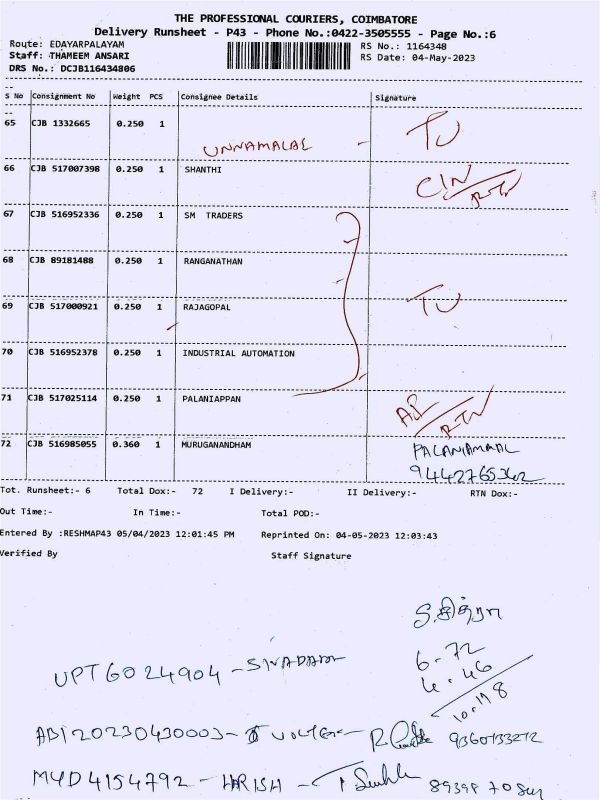 THE PROFESSIONAL COURIERS, COIMBATORE
Delivery Runsheet - P43 - Phone No.:0422-3505555 - Page No.:6
Route: EDAYARPALAYAM RS No.: 1164348
Staff: THAMEEM ANSARI RS Date: 04-May-2023
DRS No.: DCJB116434806
S No Consignment No Weight PCS Consignee Details Signature
65 CJB 1332665 0.250 1 TU
UNNAMALAI -
66 CJB 517007398 0.250 1 SHANTHI
CIN/RTN
67 CJB 516952336 0.250 1 SM TRADERS
68 CJB 89181488 0.250 1 RANGANATHAN
69 CJB 517000921 0.250 1 RAJAGOPAL TU
70 CJB 516952378 0.250 1 INDUSTRIAL AUTOMATION
71 CJB 517025114 0.250 1 PALANIAPPAN
RTN
72 CJB 516985055 0.360 1 MURUGANANDHAM PALANIAMAAL
9442765362
Tot. Runsheet:- 6 Total Dox:- 72 I Delivery:- II Delivery:- RTN Dox:-
Out Time:- In Time:- Total POD:-
Entered By :RESHMAP43 05/04/2023 12:01:45 PM Reprinted On: 04-05-2023 12:03:43
Verified By Staff Signature
சித்ரா
6-72
4-46
10-118
UPT6024904 -
ABI20230430003 - 9360133212
MYD4154792 - HARISH -